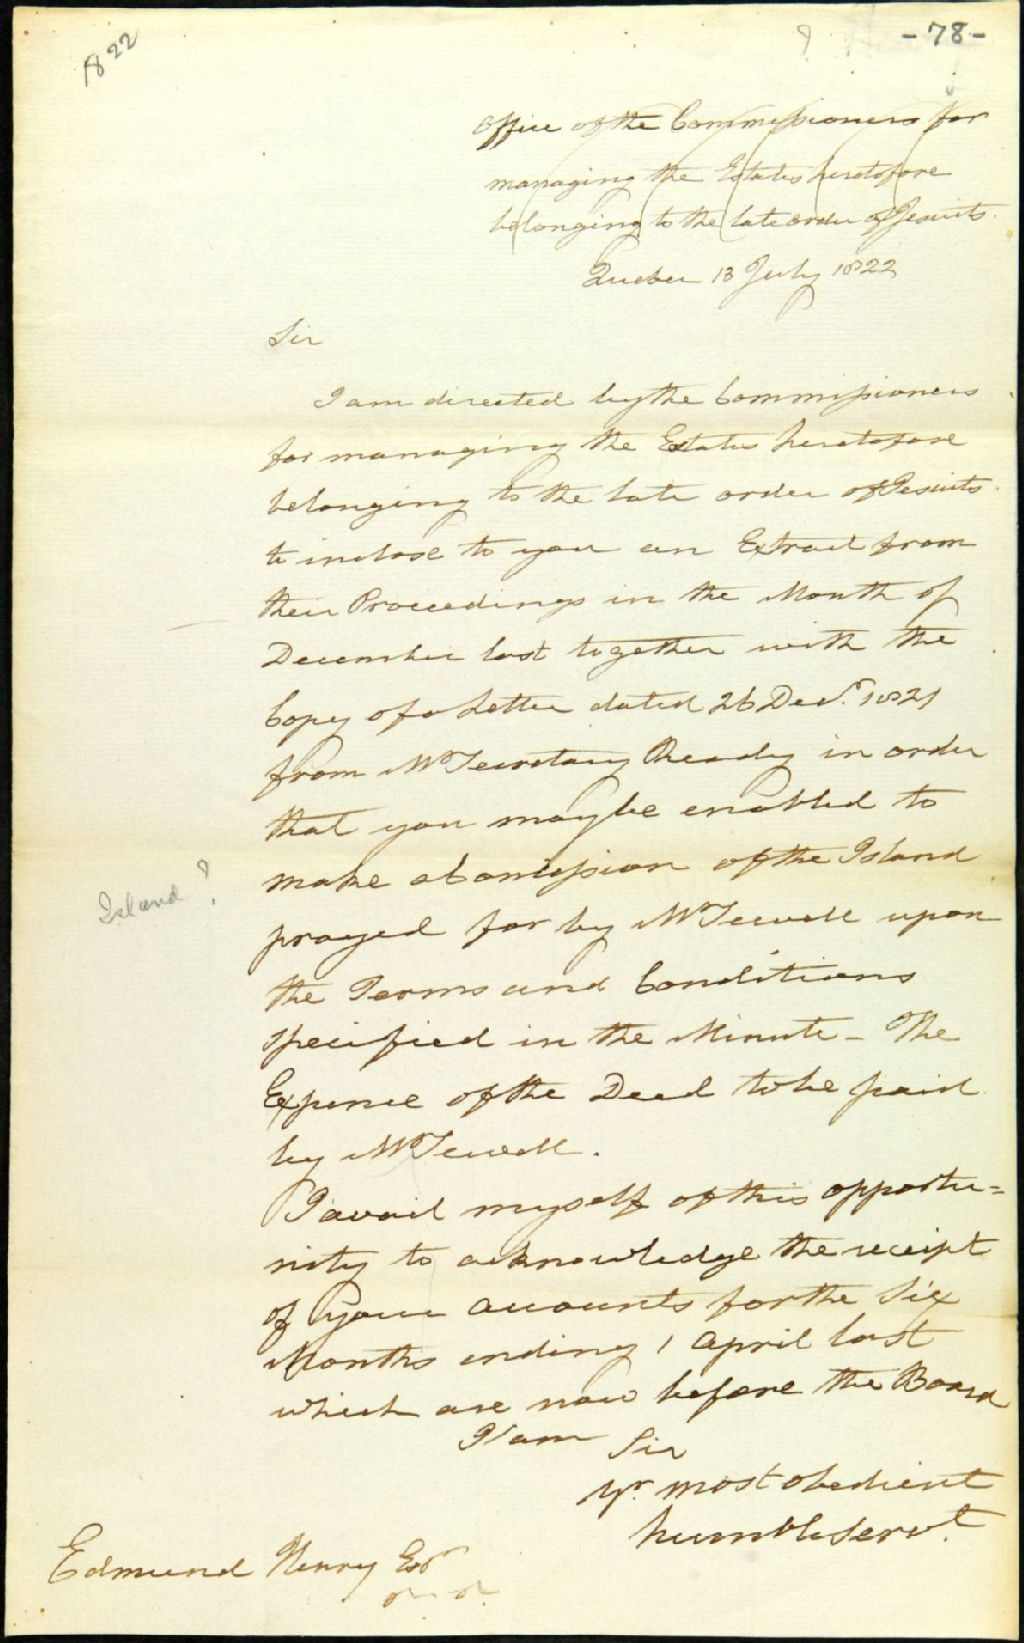 1822
- 78 -
Office of the Commissioners for
managing the Estates heretofore
belonging to the late order of Jesuits.
Quebec 13 July 1822
Sir
I am directed by the Commissioners
for managing the Estates heretofore
belonging to the late order of Jesuits
to inclose to you an Extract from
their Proceedings in the Month of
December last together with the
Copy of a Letter dated 26 Decr. 1821
from Mr Secretary Ready in order
that you may be enabled to
make a Concession of the Island
Island ?
prayed for by Mr Sewell upon
the Terms and Conditions
specified in the Minute - The
Expence of the Deed to be paid
by Mr Sewell.
I avail myself of this opportu=
nity to acknowledge the receipt
of your accounts for the Six
Months ending 1 April last
which are now before the Board
I am Sir
Yr. most obedient
humble Servt.
Edmund Henry Esqr